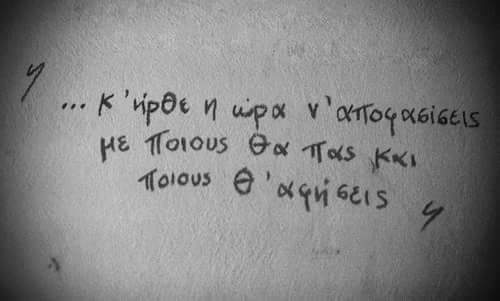 ... κ'ήρθε η ώρα ν'αποφασίσεις
με ποιους θα πας και
ποιους θ'αφήσεις